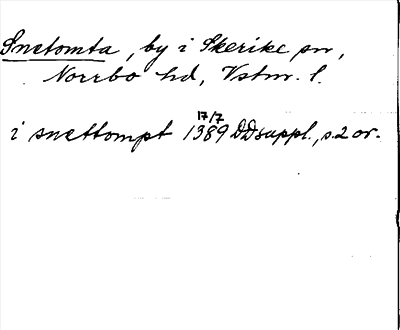 Snetomta, by i Skerike sn,
Norrbo hd, Vstm. l.
i snettompt 17/7 1389 DD suppl., s. 2 or.